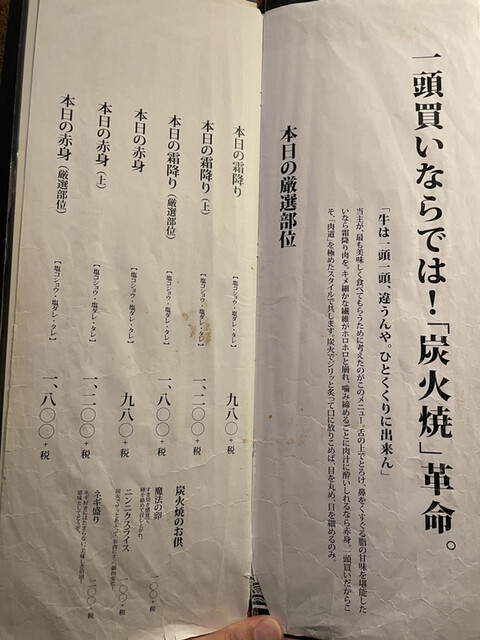 一頭買いならでは！「炭火焼」革命。
「牛は一頭一頭、違うんや。ひとくくりに出来ん」
当主が、最も美味しく食べてもらうために考えたのがこのメニュー。舌の上でとろけ、鼻をくすぐる脂の甘味を堪能した
いなら霜降り肉を。キメ細かな繊維がホロホロと崩れ、噛み締めるごとに肉汁に酔いしれるなら赤身。一頭買いだからこ
そ、「肉道」を極めたスタイルで供します。炭火でジリッと炙って口に放りこめば、目を丸め、目を細めるのみ。
本日の厳選部位
本日の霜降り【塩コショウ・塩ダレ・タレ】九八〇+税
本日の霜降り（上）【塩コショウ・塩ダレ・タレ】一、二〇〇+税
本日の霜降り（厳選部位）【塩コショウ・塩ダレ・タレ】一、八〇〇+税
本日の赤身【塩コショウ・塩ダレ・タレ】九八〇+税
本日の赤身（上）【塩コショウ・塩ダレ・タレ】一、二〇〇+税
本日の赤身（厳選部位）【塩コショウ・塩ダレ・タレ】一、八〇〇+税
炭火焼のお供
魔法の卵
一〇〇+税
ニンニクスライス
一〇〇+税
ネギ盛り
二〇〇+税